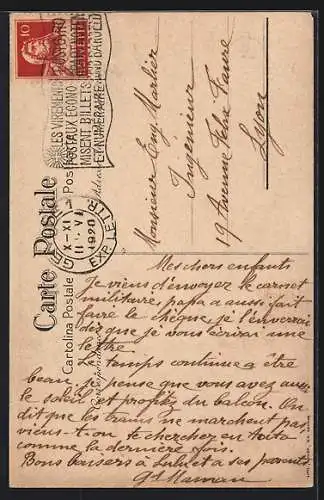 10
LES VIREMENTS
POSTAUX ECONO
MISENT BILLETS
ET NUMERAIRE
Carte Postale
Cartolina Postale
X-XI
11.V
1920
EXP. LETTR.
Monsieur Eug. Morlier
Ingénieur
19 Avenue Félix Faure
Lyon
Mes chers enfants
Je viens d'envoyer le carnet
militaire, papa a aussi fait
faire le chèque, je l'enverrai
dès que je vous écrirai une
lettre
Le temps continue a être
beau, je pense que vous avez aussi
le soleil et profitez du balcon. On
dit que les trains ne marchent pas,
viens-t-on te chercher en auto
comme la dernière fois.
Bons baisers à et a ses parents
Gd Maman